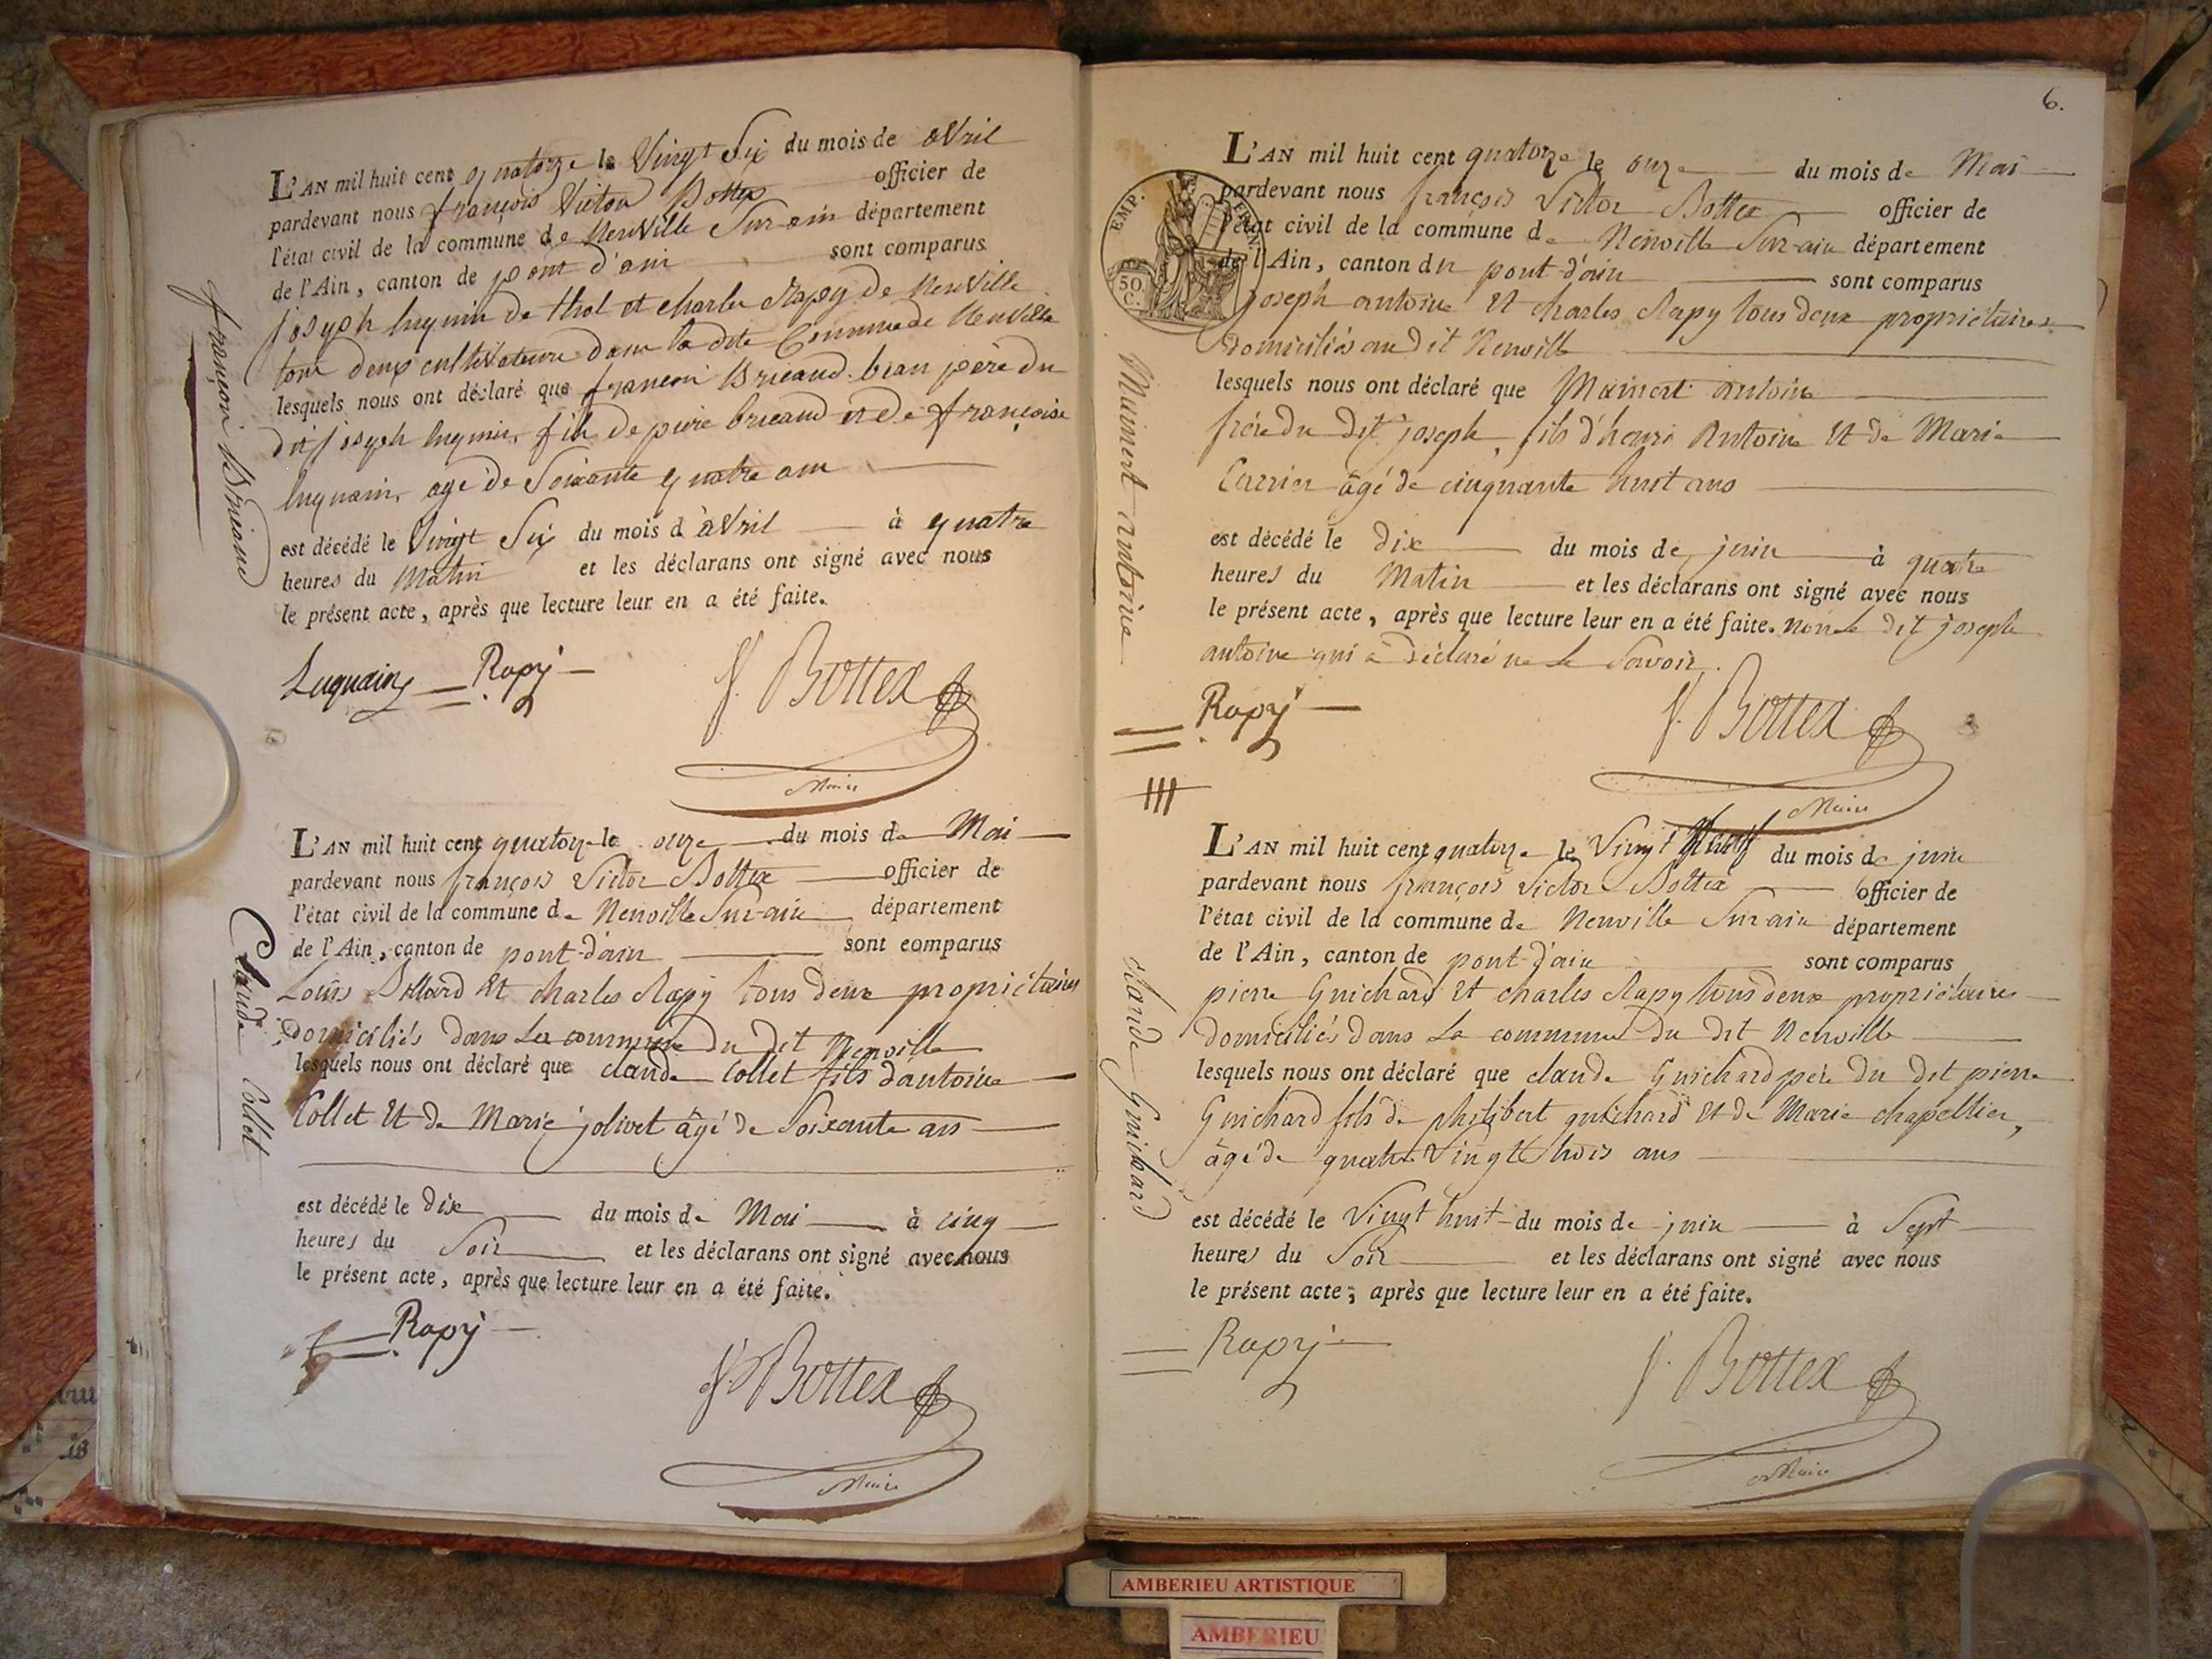 L'AN mil huit cent quatorze le Vingt Six du mois de avril
pardevant nous françois Victor Bottex officier de
l'état civil de la commune de Neuville Sur ain département
de l'Ain, canton de pont d'ain sont comparus
joseph luquin de thol et charles Rapy de Neuville
tous deux cultivateurs dans la dite Commune de Neuville
lesquels nous ont déclaré que françois Bricaud beau père du
dit joseph luquin, fils de piere briceaud et de françoise
luquain, agé de Soixante quatre ans
est décédé le Vingt Six du mois d'avril à quatre
heures du Matin et les déclarans ont signé avec nous
le présent acte, après que lecture leur en a été faite.
Luquain Rapy f. Bottex
Maire
françois Briceaud
L'AN mil huit cent quatorze le onze du mois de Mai
pardevant nous françois Victor Bottex officier de
l'état civil de la commune de Neuville Sur-ain département
de l'Ain, canton de pont-d'ain sont comparus
Louis et charles Rapy tous deux propriétaires
domiciliés dans la commune du dit Neuville
lesquels nous ont déclaré que claude Collet fils d'antoine
Collet et de Marie jolivet âgé de Soixante ans
est décédé le dix du mois de Mai à cinq
heures du Soir et les déclarans ont signé avec nous
le présent acte, après que lecture leur en a été faite.
Rapy f. Bottex
Maire
Claude Collet
6.
EMP. FRAN.
50 C.
L'AN mil huit cent quatorze le onze du mois de Mai
pardevant nous françois Victor Bottex officier de
l'état civil de la commune de Neuville Sur-ain département
de l'Ain, canton du pont-d'ain sont comparus
joseph antoine et charles Rapy tous deux propriétaires
domiciliés au dit Neuville
lesquels nous ont déclaré que Maimert antoine
frère du dit joseph, fils d'henri Antoine et de Marie
Carrier âgé de cinquante huit ans
est décédé le dix du mois de juin à quatre
heures du Matin et les déclarans ont signé avec nous
le présent acte, après que lecture leur en a été faite. non le dit joseph
antoine qui a déclaré ne le Savoir.
Rapy f. Bottex
Maire
Maimert antoine
L'AN mil huit cent quatorze le Vingt Neuf du mois de juin
pardevant nous françois Victor Bottex officier de
l'état civil de la commune de Neuville Sur ain département
de l'Ain, canton de pont-d'ain sont comparus
pierre Guichard et charles Rapy tous deux propriétaires
domiciliés dans la commune du dit Neuville
lesquels nous ont déclaré que claude Guichard père du dit pierre
Guichard fils de philibert guichard et de Marie chapellier,
âgé de quatre Vingt trois ans
est décédé le Vingt huit du mois de juin à Sept
heures du Soir et les déclarans ont signé avec nous
le présent acte, après que lecture leur en a été faite.
Rapy f. Bottex
Maire
claude Guichard
AMBERIEU ARTISTIQUE
AMBERIEU